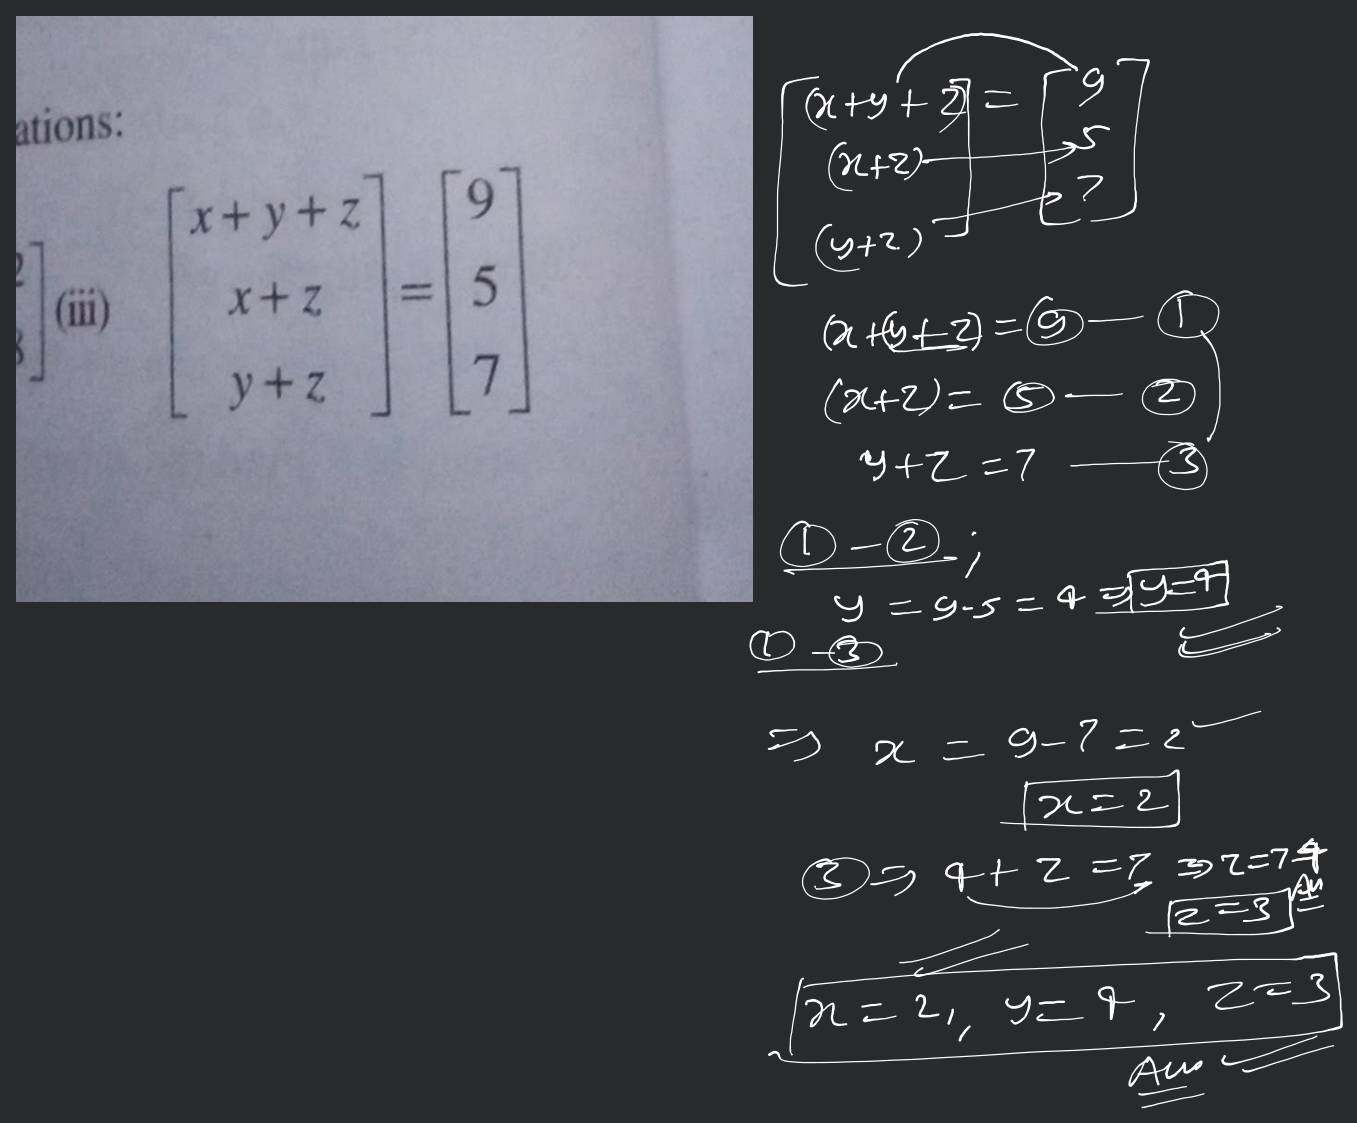 ations:
(iii) [x + y + z
x + z
y + z] = [9
5
7]
[(x+y+z)
(x+z)
(y+z)] = [9
5
7]
(x+(y+z) = 9 — 1
(x+z) = 5 — 2
y+z = 7 — 3
1 - 2 ;
y = 9-5 = 4 ⇒ y=4
1 - 3
⇒ x = 9-7 = 2
x = 2
3 ⇒ 4 + z = 7 ⇒ z = 7-4
z = 3 Ans
x = 2, y = 4, z = 3
Ans